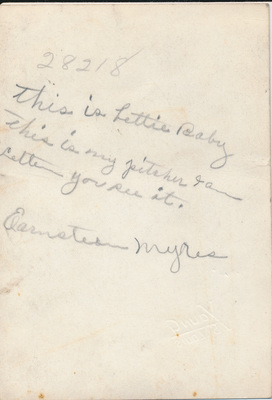 28218
this is Lettie Baby
this is my pitcher I am
letten you see it.
Earnstean Myres